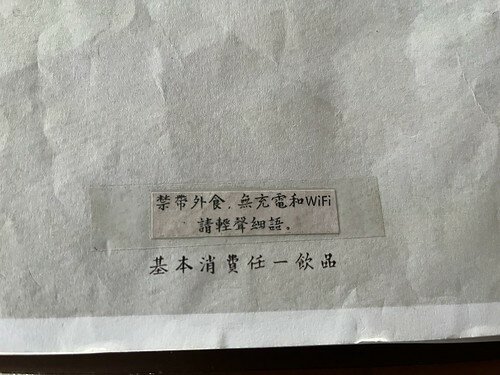 禁帶外食，無充電和WiFi
請輕聲細語。
基本消費任一飲品